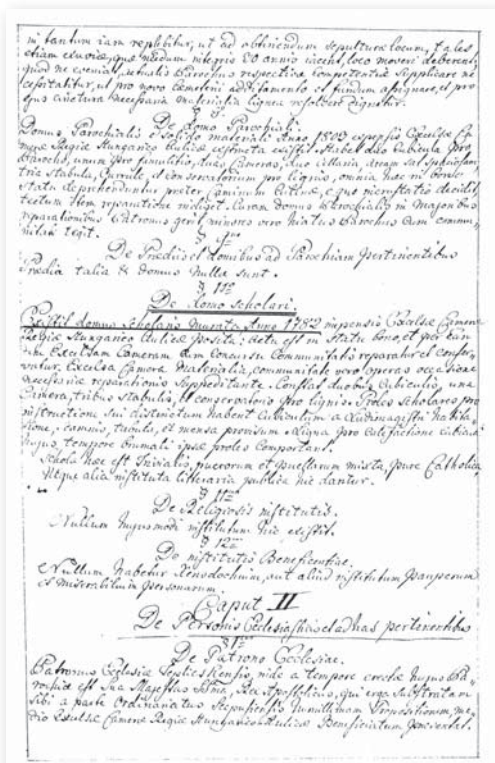 in tantum iam replebitur, ut ad obtinendum sepulturæ locum, tales
etiam exuviæ, quæ nondum integris 20 annis iacent, loco moveri deberent,
quod ne eveniat, actualis Parochus respectivæ competentiæ supplicare ne-
cessitabitur, ut pro novo cæmeterii additamento et fundum assignare, et pro
ejus materialia lignea resolvere dignetur.
De Domo Parochiali.
Domus Parochialis e solido materiali Anno 1803 expensis Excelsæ Ca-
meræ Regiæ Hungarico Aulicæ existit. Habet duo Cubicula pro
Parocho, unum pro famulitio, duas Cameras, duo Cellaria,
tria stabula, et conservatorium pro lignis, omnia hæc in bono
statu deprehenduntur præter Caminum Culinæ, e quo decidit,
tectum item reparatione indiget. Curam domus Parochialis in Majoribus
reparationibus Patronus gerit, minores vero Parochus cum commu-
nitate tegit.
De Prædiis et Domibus ad Parochiam pertinentibus
Prædia talia & domus nullæ sunt.
De Domo Scholari.
Existit domus Scholaris murata Anno 1782 impensis Excelsæ Cameræ
Regiæ Hungarico Aulicæ posita: actu est in statu bono, et per ean-
dem Excelsam Cameram cum Concursu Communitatis reparatur et conser-
vatur, Excelsa Camera materialia, communitate vero operas occasione
necessariæ reparationis suppeditante. Constat duobus Cubiculis, una
Camera, tribus stabulis, et conservatorio pro lignis. Proles scholares pro
instructione sui distinctum habent Cubiculum a Ludimagistri habita-
tione, scamnis, tabula, et mensa provisum. Ligna pro calefactione cubiculi
hujus, tempore brumali ipsæ proles comportant.
Schola hæc est Trivialis, puerorum et puellarum mixta, pure Catholica,
Neque alia instituta litteraria publica hic dantur.
§ 11mo
De Religiosis institutis.
Nullum hujusmodi institutum hic existit.
§ 12mo
De institutis Beneficentiæ.
Nullum habetur Xenodochium, aut aliud institutum pauperum
et miserabilium personarum.
Caput II
De Personis Ecclesiasticis et ad has pertinentibus
De Patrono Ecclesiæ.
Patronus Ecclesiæ inde a tempore erectæ hujus Pa-
rochiæ est Sua Majestas Rex Apostolicus, qui erga substratam
sibi a parte Ordinariatus Scepusiensis Propositionem, me-
dio Excelsæ Cameræ Regiæ Hungarico Aulicæ Beneficiatum præsentat.